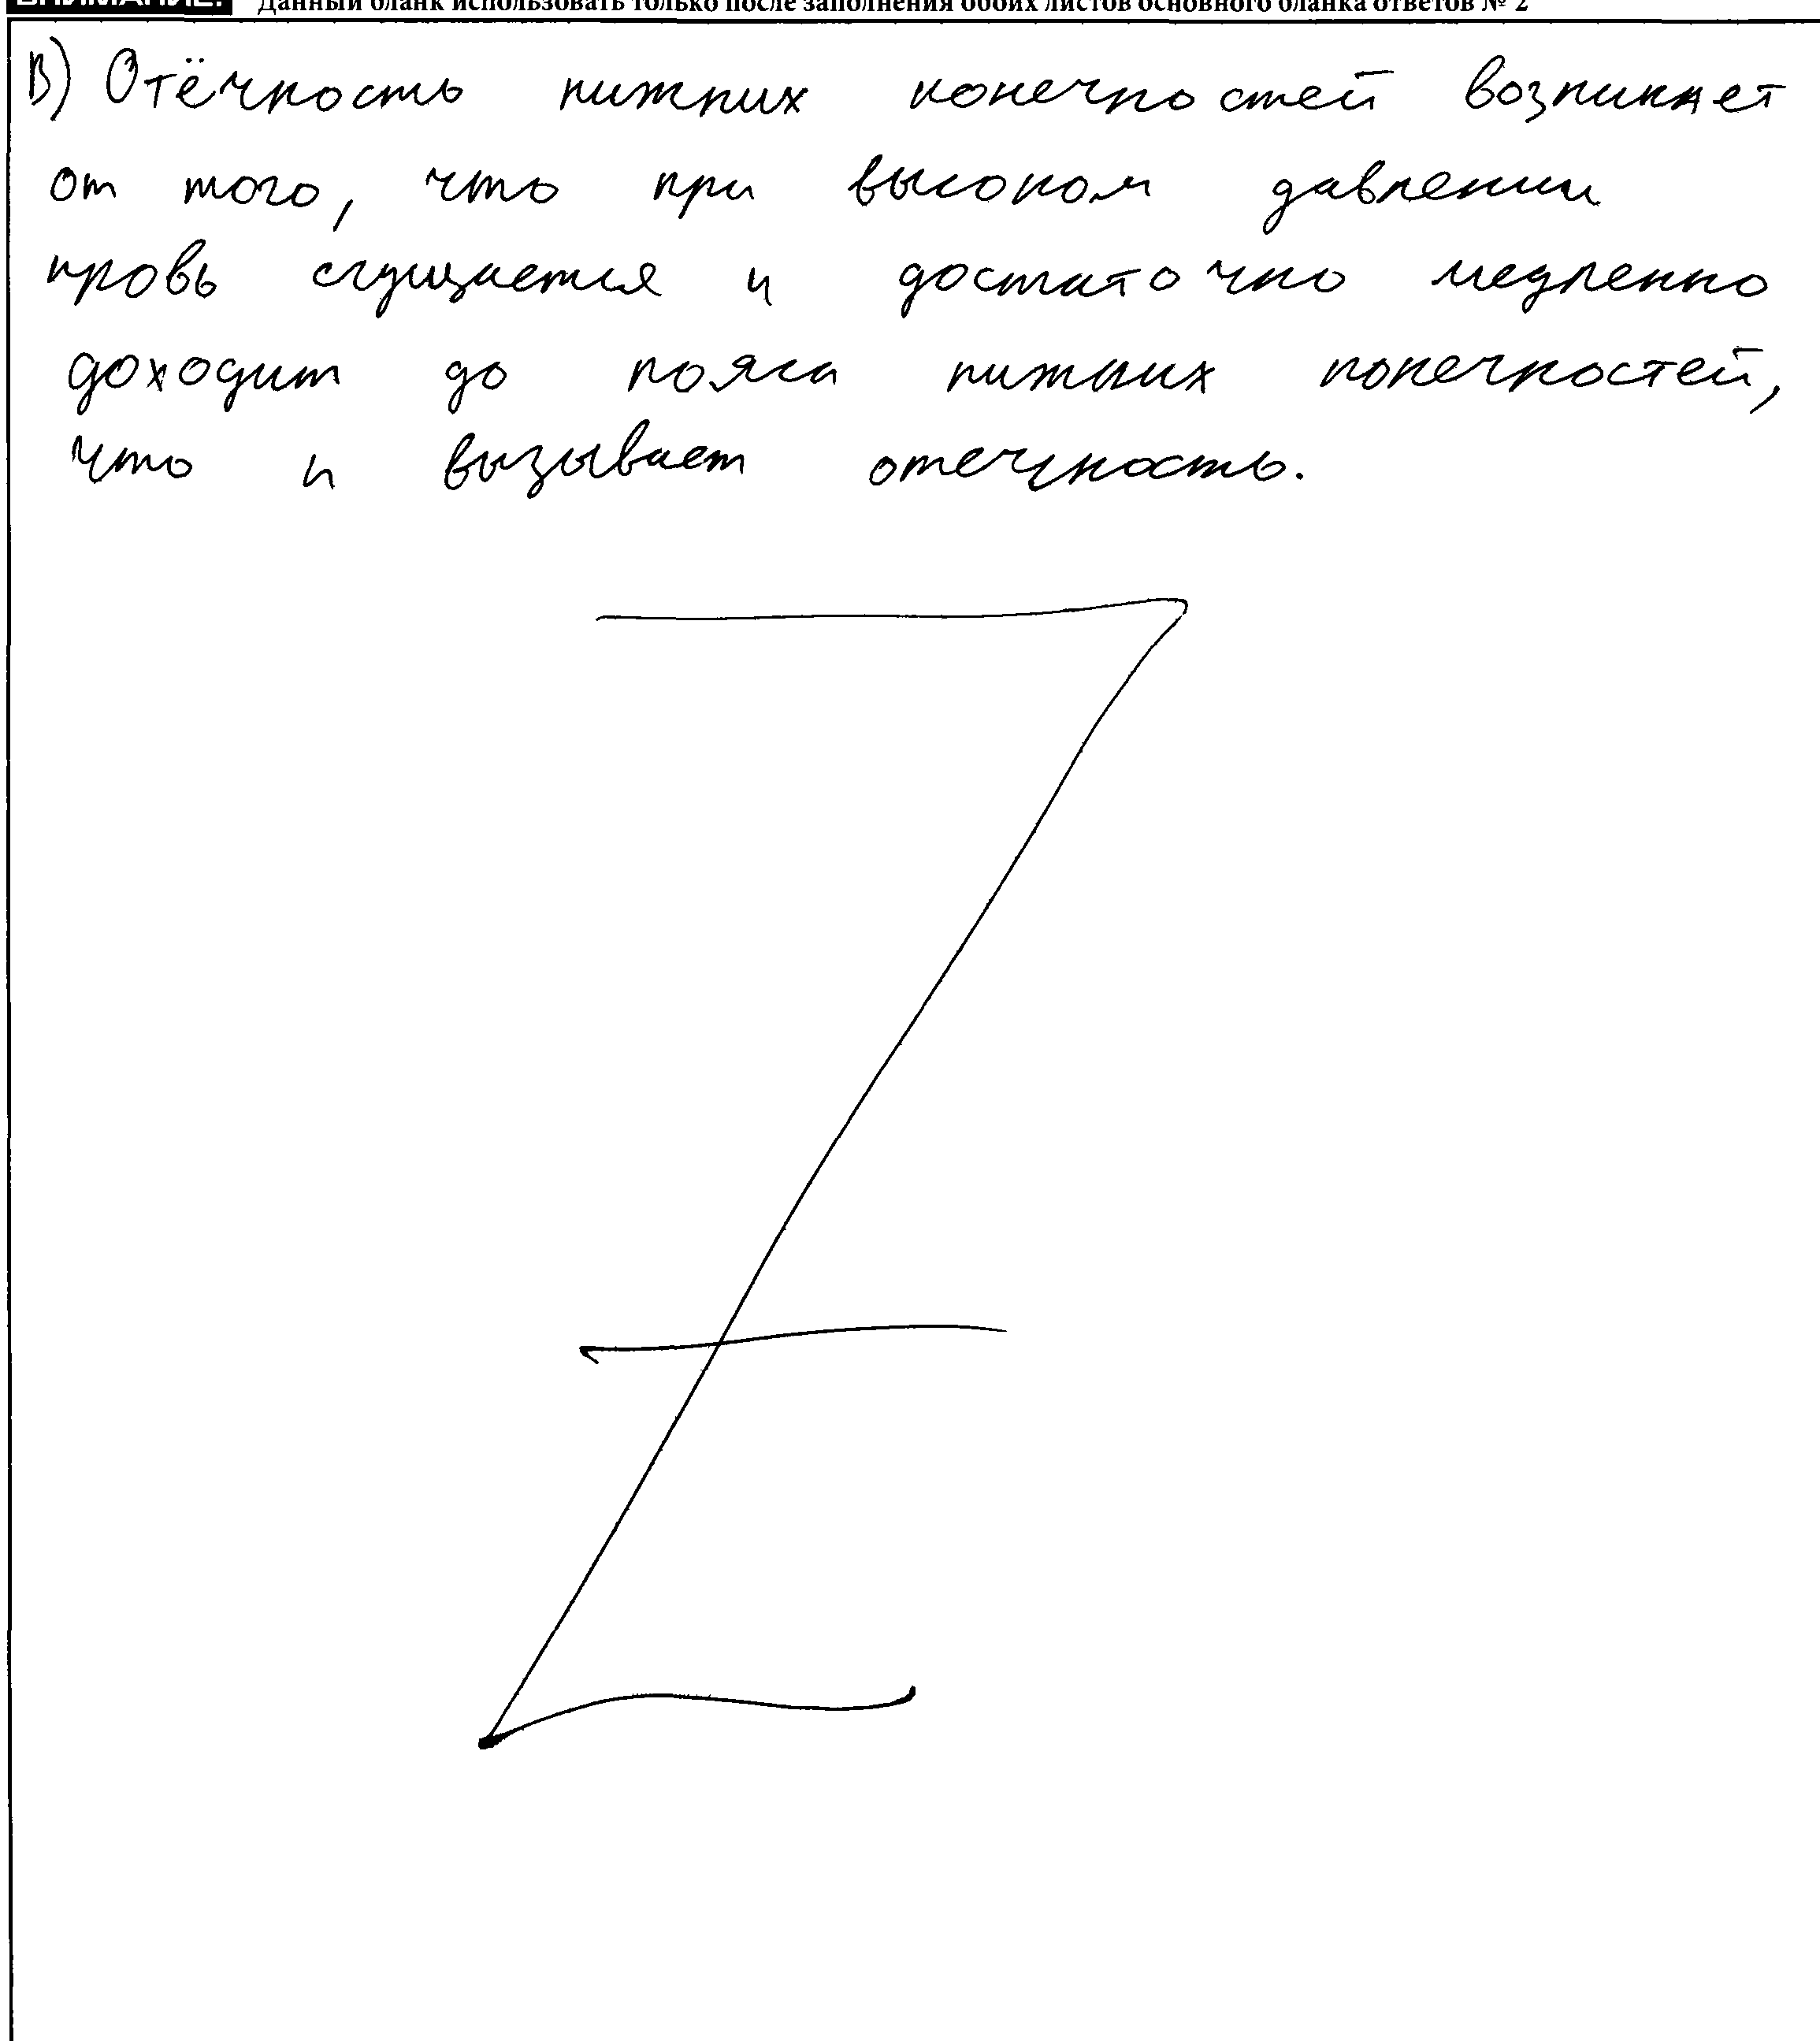 ВНИМАНИЕ! Данный бланк использовать только после заполнения обоих листов основного бланка ответов № 2
В) Отёчность нижних конечностей возникает
от того, что при высоком давлении
кровь сгущается и достаточно медленно
доходит до пояса нижних конечностей,
что и вызывает отечность.